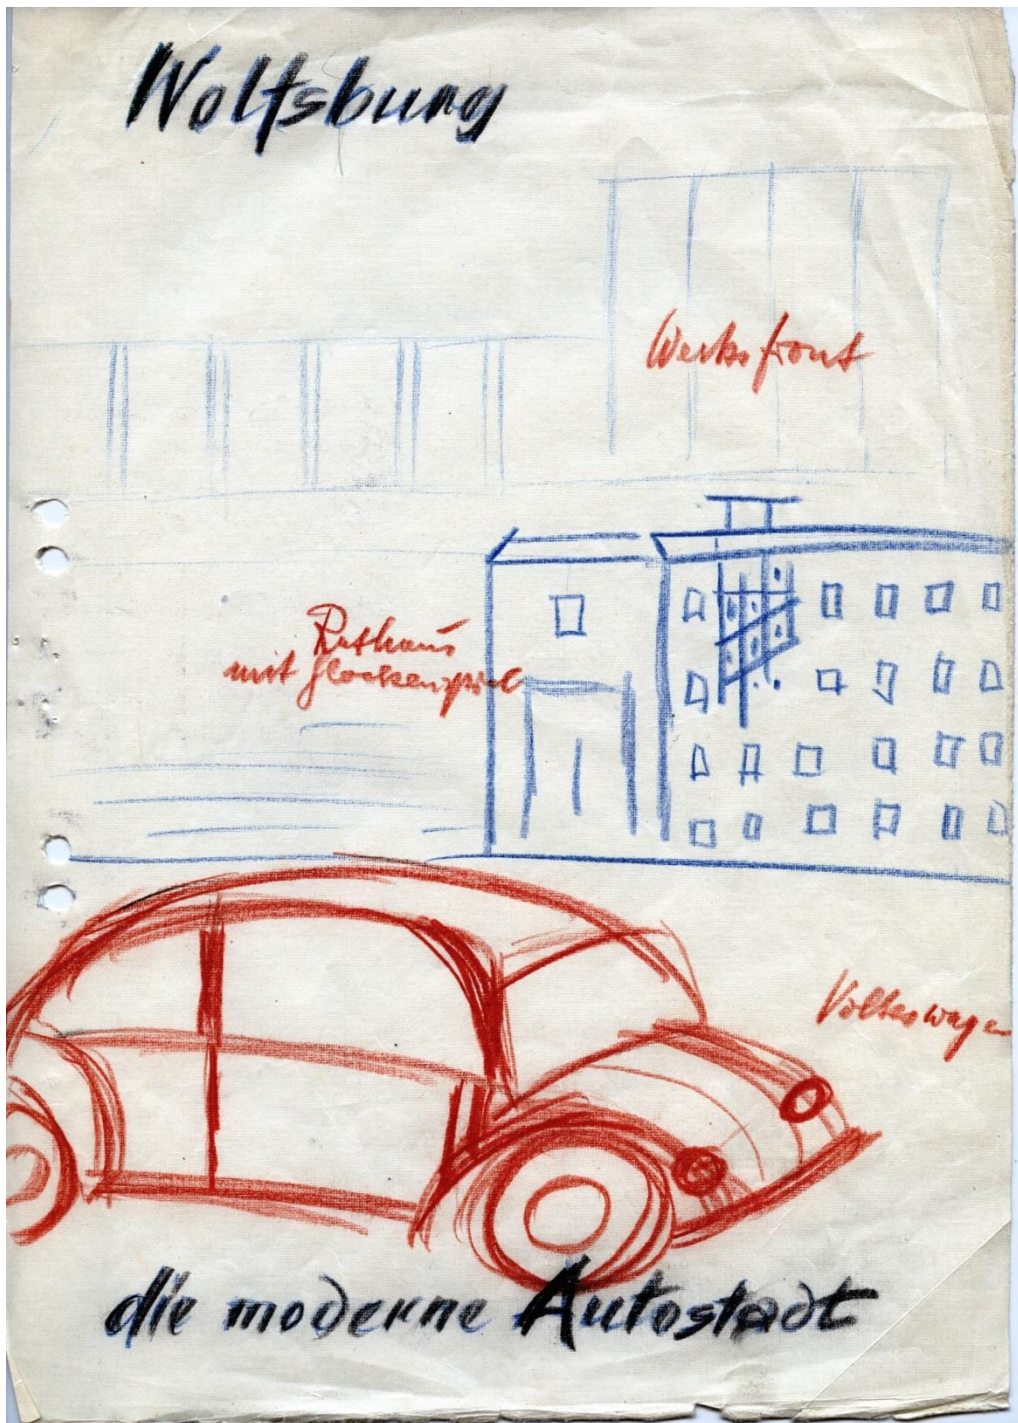 Wolfsburg
Werksfront
Rathaus
mit Glockenspiel
Volkswagen
die moderne Autostadt